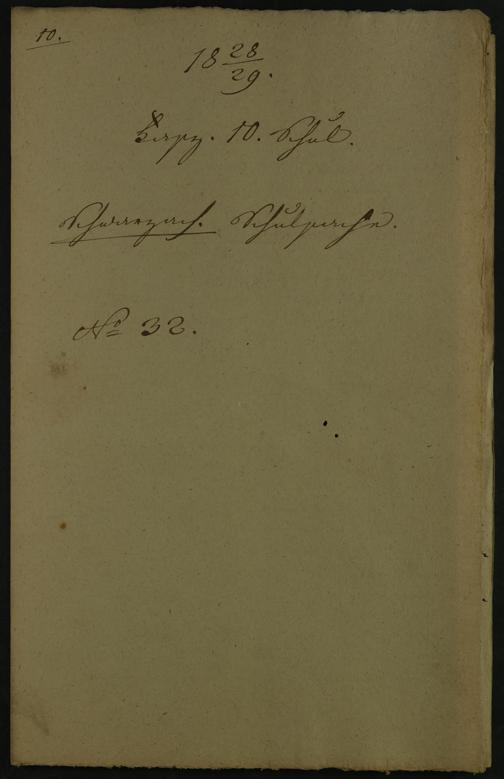 10.
18 28/29.
10. Schul.
Schwarzach. Schulsache.
No 32.